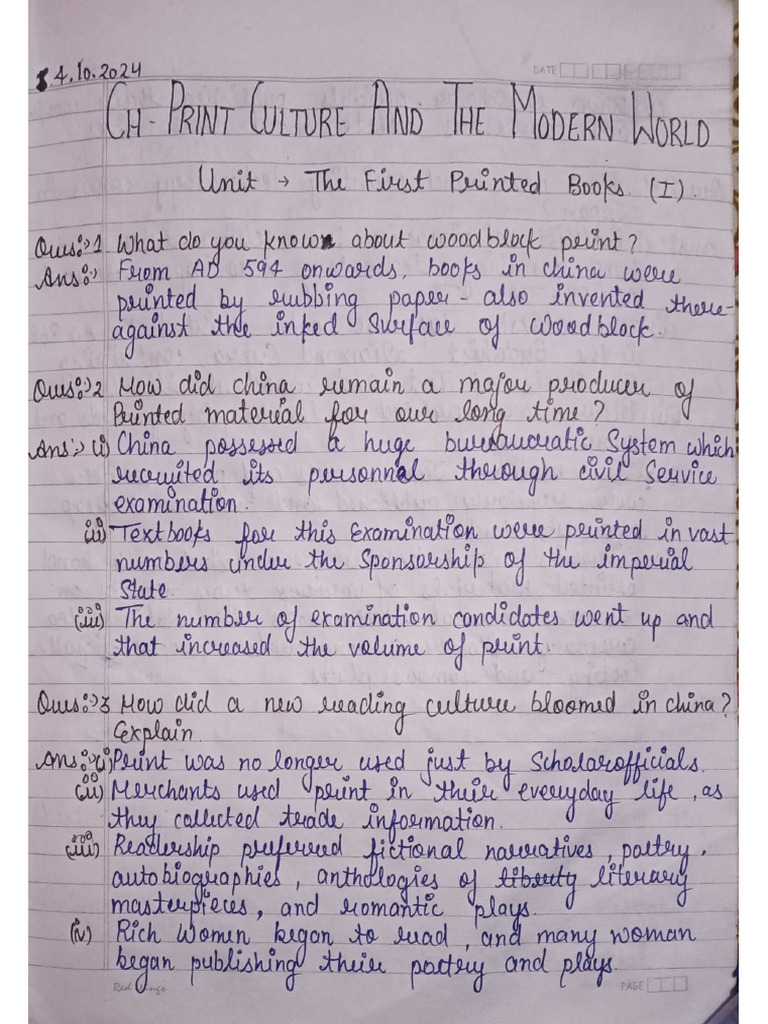 4.10.2024
DATE
CH- PRINT CULTURE AND THE MODERN WORLD
Unit → The First Printed Books (I).
Ques:-1 What do you know about woodblock print?
Ans:- From AD 594 onwards, books in china were
printed by rubbing paper - also invented there-
against the inked surface of woodblock.
Ques:-2 How did china remain a major producer of
Printed material for our long time?
Ans:- (i) China possessed a huge bureaucratic System which
recruited its personnal through civil Service
examination.
(ii) Textbooks for this Examination were printed in vast
numbers under the Sponsorship of the imperial
State.
(iii) The number of examination candidates went up and
that increased the volume of print.
Ques:-3 How did a new reading culture bloomed in china?
Explain.
Ans:-(i) Print was no longer used just by Scholarofficials.
(ii) Merchants used print in their everyday life, as
they collected trade information.
(iii) Readership preferred fictional narratives, poetry,
autobiographies, anthologies of literary
masterpieces, and romantic plays.
(iv) Rich Women began to read, and many woman
began publishing their poetry and plays.
PAGE